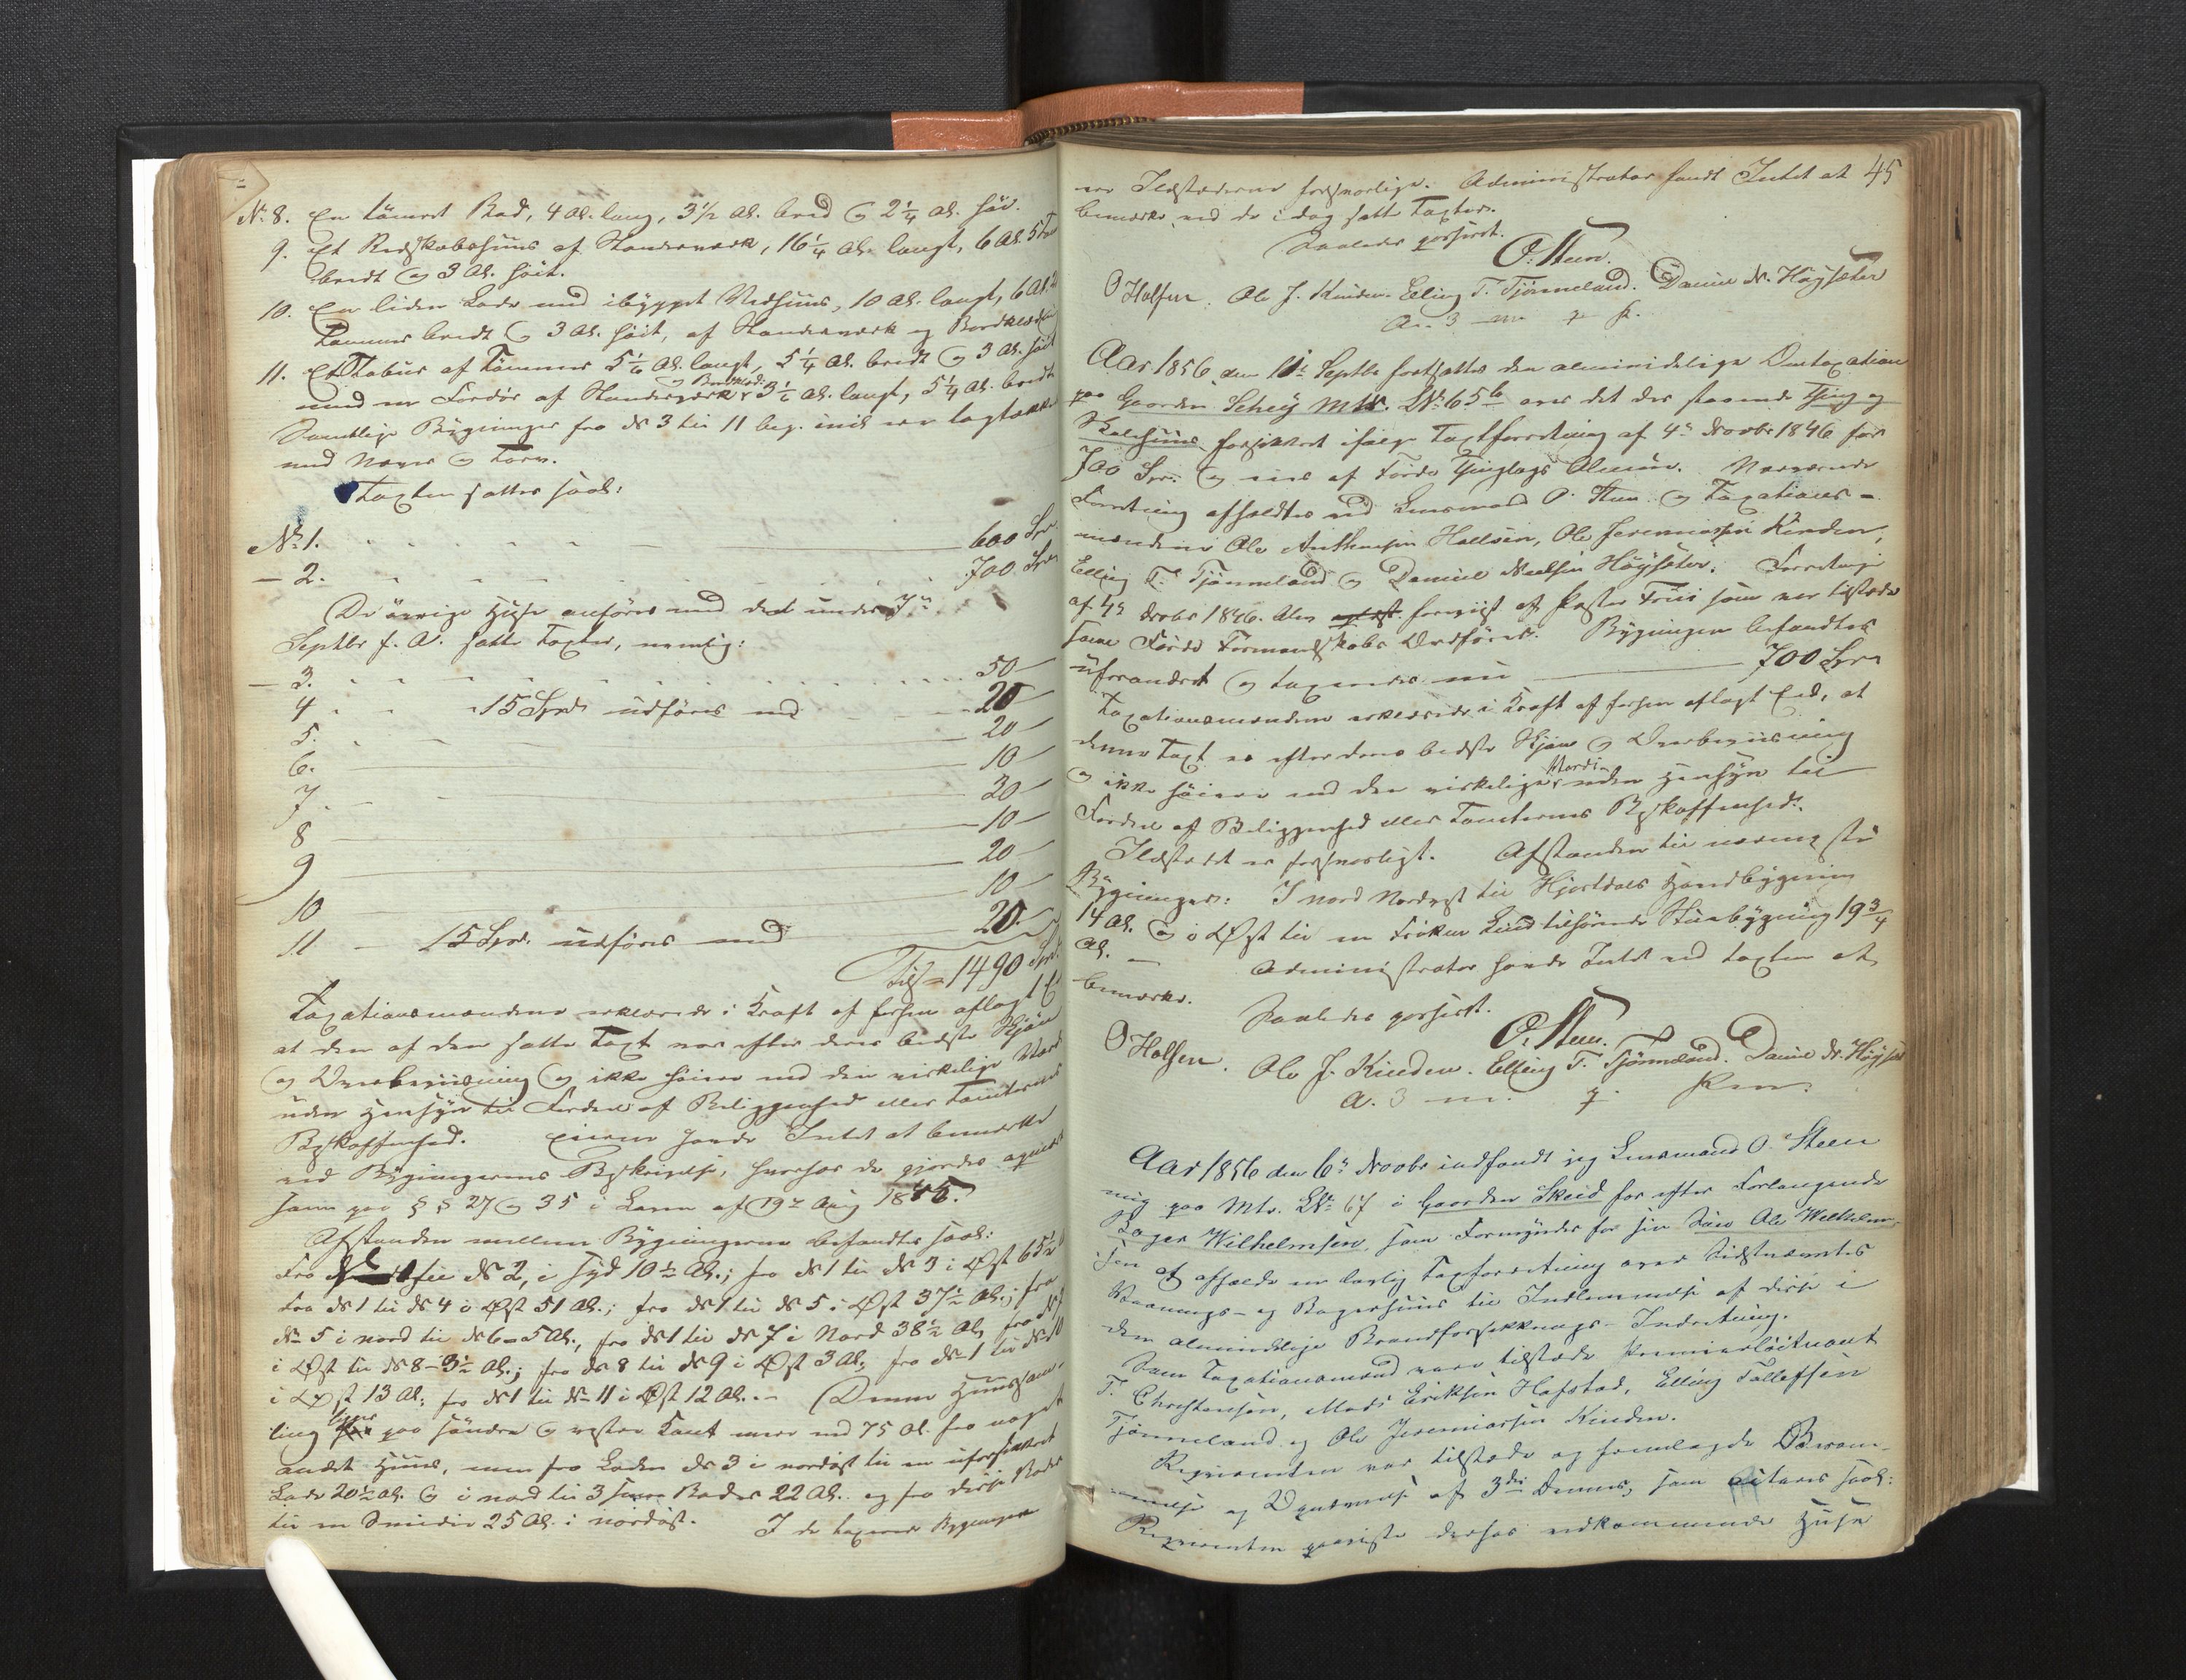 No 8. En tömret Bod, 4 Al. lang, 3 1/2 Al. bred og 2 1/4 Al. höi.
9. Et Redskabshuus af Standerværk, 16 1/4 Al. langt, 6 Al. 5 Tom
bredt og 3 Al. höit.
10. En liden Lade med ibygget Vedhuus, 10 Al. langt, 6 Al.
Tommer bredt og 3 Al. höit, af Standerværk og Bordklædn
11. Et Stabur af Tömmer 5 1/4 Al. langt, 5 1/4 Al. bredt og 3 Al. höit
med en Fordör af Standerværk og Bordklædn: 3 1/2 Al. langt, 5 1/4 Al. bredt
Samtlige Bygninger fra No 3 til 11 beg. incl. ere tagtækket
med Næver og Torv.
Taxten sattes saal:
No 1. 600 Spd
- 2. 700 Spd
De övrige Huse anföres med den under 7de
Septbr f. A. satte Taxter, nemlig:
- 3. 50
4 15 Spd udföres med 20
5. 20
6. 10
7. 20
8 10
9 20
10 10
11 15 Spd. udföres med 20
Tils = 1490 Spd.
Taxationsmændene erklærede i Kraft af forhen aflagt Ed
at den af dem satte Taxt var efter deres bedste Skjön
og Overbeviisning og ikke höiere end den virkelige Værd
uden Hensyn til Fordel af Beliggenhed eller Tomternes
Beskaffenhed. Eieren havde Intet at bemærke
ved Bygningernes Beskrivelse, hvorhos de gjordes opmærk
som paa § § 27 og 35 i Loven af 19de Aug 1845.
Afstanden mellem Bygningerne befandtes saal:
Fra No 1 til No 2, i Syd 10 1/2 Al.; fra No 1 til No 3 i Öst 65 1/2
Fra No 1 til No 4 i Öst 51 Al.; fra No 1 til No 5 i Öst 37 1/2 Al.; fra
No 5 i Nord til No 6 - 5 Al., fra No 1 til No 7 i Nord 38 1/2 Al, fra No 7
i Öst til No 8 - 3 1/2 Al.; fra No 8 til No 9 i Öst 3 Al; fra No 1 til No 10
i Öst 13 Al; fra No 1 til No 11 i Öst 12 Al. - Denne Huussam-
ling ligger paa söndre og vestre Kant mere end 75 Al. fra noget
andet Huus, men fra Laden No 3 i nordöst til en uforsikkret
Lade 20 1/2 Al. og i nord til 3 Boder 22 Al. og fra disse Boder
til en Smedie 25 Al. i nordöst. I de taxerede Bygninger
45
ere Ildstederne forsvarlige. Administrator fandt Intet at
bemærke ved de i dag satte Taxter.
Saaledes passeret.
O. Steen.
O Halsen. Ole J. Kinden. Elling T. Tjønneland. Daniel N. Høysæter
a. 3 m p P.
Aar 1856 den 11te Septbr fortsattes den almindelige Omtaxation
paa Gaarden Schey Mtr. LNo 65b over det der staaende Thing og
Skolehuus, forsikkret ifölge Taxtforretning af 4de Novbr 1846 for
700 Spd: og eies af Förde Thinglags Almue. Nærværende
Forretning afholdtes ved Lensmand O. Steen og Taxations-
mændene Ole Anthonsen Hallsen, Ole Jeremiassen Kinden,
Elling T. Tjønneland og Daniel Nielsen Höysæter. Forretningen
af 4de Novbr 1846. blev forevist af Pastor som var tilstede
som Förde Formandskabs Ordförer. Bygningen befandtes
uforandret og taxeredes nu 700 Spd
Taxationsmændene erklærede i Kraft af forhen aflagt Ed, at
denne Taxt er efter deres bedste Skjön og Overbeviisning
og ikke höiere end den virkelige Værdi uden Hensyn til
Fordel af Beliggenhed eller Tomternes Beskaffenhed.
Ildstedet er forsvarligt. Afstanden til nærmeste
Bygninger: I nord Nordvest til Hjortdals Vaandbygning
14 Al. og i Öst til en Fröken Lund tilhörende Stuebygning 19 3/4
Al. - Administrator havde Intet ved taxten at
bemærke.
Saaledes passeret.
O. Steen.
O Halsen. Ole J. Kinden. Elling T. Tjønneland. Daniel N. Høysæ
a. 3 m. p. Pen:
Aar 1856 den 6te Novbr indfandt jeg Lensmand O. Steen
mig paa Mtr. LNo 67 i Gaarden Skeid for efter Forlangende
Wilhelmsen, som Formynder for sin Sön Ole Wilhelm-
sen at afholde en lovlig Taxtforretning over Sidstnævntes
Vaanings- og Bagerhuus til Indlemmelse af disse i
den almindelige Brandforsikkrings-Indretning.
Som Taxationsmænd vare tilstede Premierlöitnant
T. Christensen, Mads Eriksen Hafstad, Elling Tollefsen
Tjønneland og Ole Jeremiassen Kinden.
Reqvirenten var tilstede og fremlagde Beram-
melse og Udnævnelse af 3die Dennes, som citeres saal:
Reqvirenten paaviste derhos vedkommende Huse